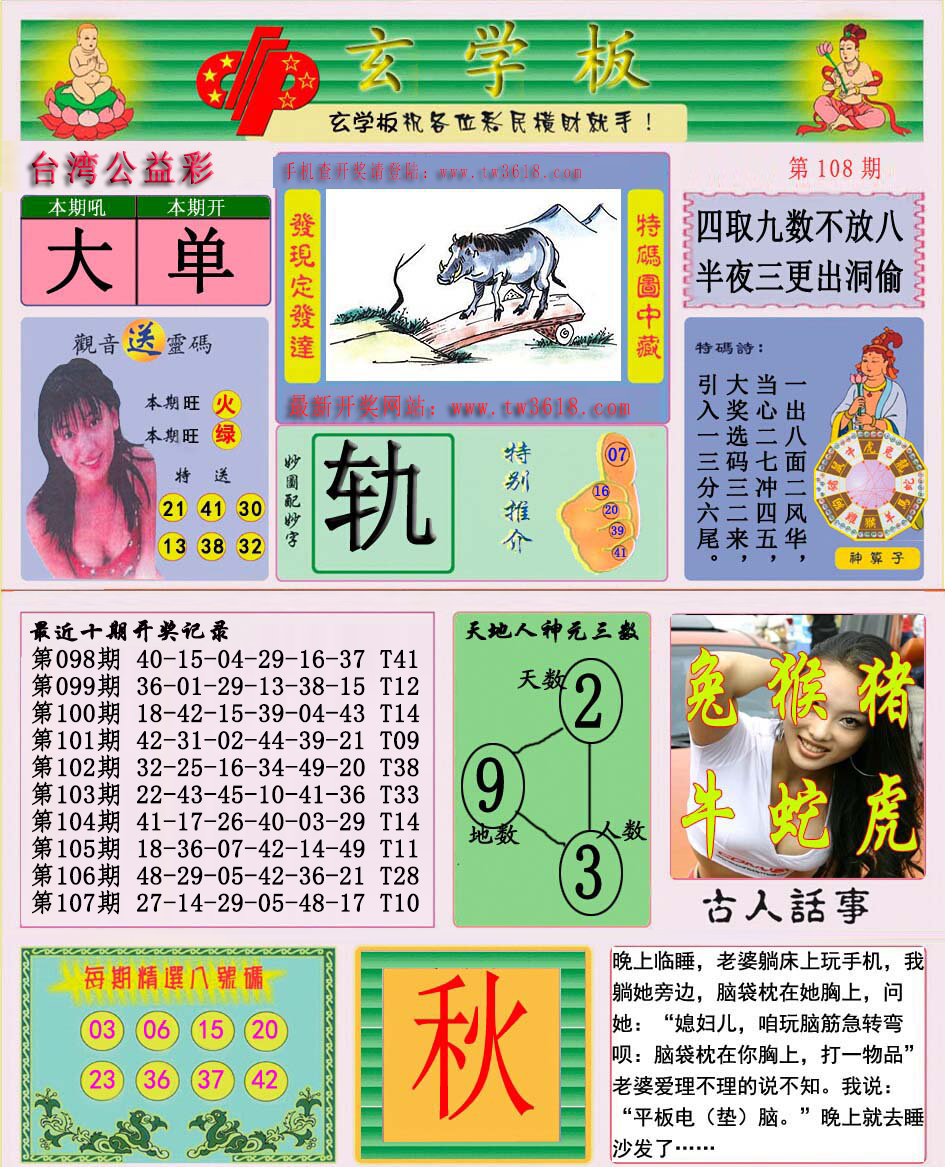 玄学板
玄学板祝各位彩民横财就手！
台湾公益彩
手机查开奖请登陆：www.tw3618.com
第108期
本期吼
本期开
大
单
發現定發達
特碼圖中藏
四取九数不放八
半夜三更出洞偷
觀音送靈碼
本期旺 火
本期旺 绿
特 送
21 41 30
13 38 32
最新开奖网站：www.tw3618.com
妙圖配妙字
轨
特别推介
07
16
20
39
41
特碼詩：
一出八面二风华，
当心二七冲四五，
大奖选码三二来，
引入一三分六尾。
神算子
最近十期开奖记录
第098期 40-15-04-29-16-37 T41
第099期 36-01-29-13-38-15 T12
第100期 18-42-15-39-04-43 T14
第101期 42-31-02-44-39-21 T09
第102期 32-25-16-34-49-20 T38
第103期 22-43-45-10-41-36 T33
第104期 41-17-26-40-03-29 T14
第105期 18-36-07-42-14-49 T11
第106期 48-29-05-42-36-21 T28
第107期 27-14-29-05-48-17 T10
天地人神元三数
天数
2
9
地数
人数
3
兔猴猪
牛蛇虎
古人話事
每期精選八號碼
03 06 15 20
23 36 37 42
秋
晚上临睡，老婆躺床上玩手机，我
躺她旁边，脑袋枕在她胸上，问
她：“媳妇儿，咱玩脑筋急转弯
呗：脑袋枕在你胸上，打一物品”
老婆爱理不理的说不知。我说：
“平板电（垫）脑。”晚上就去睡
沙发了……